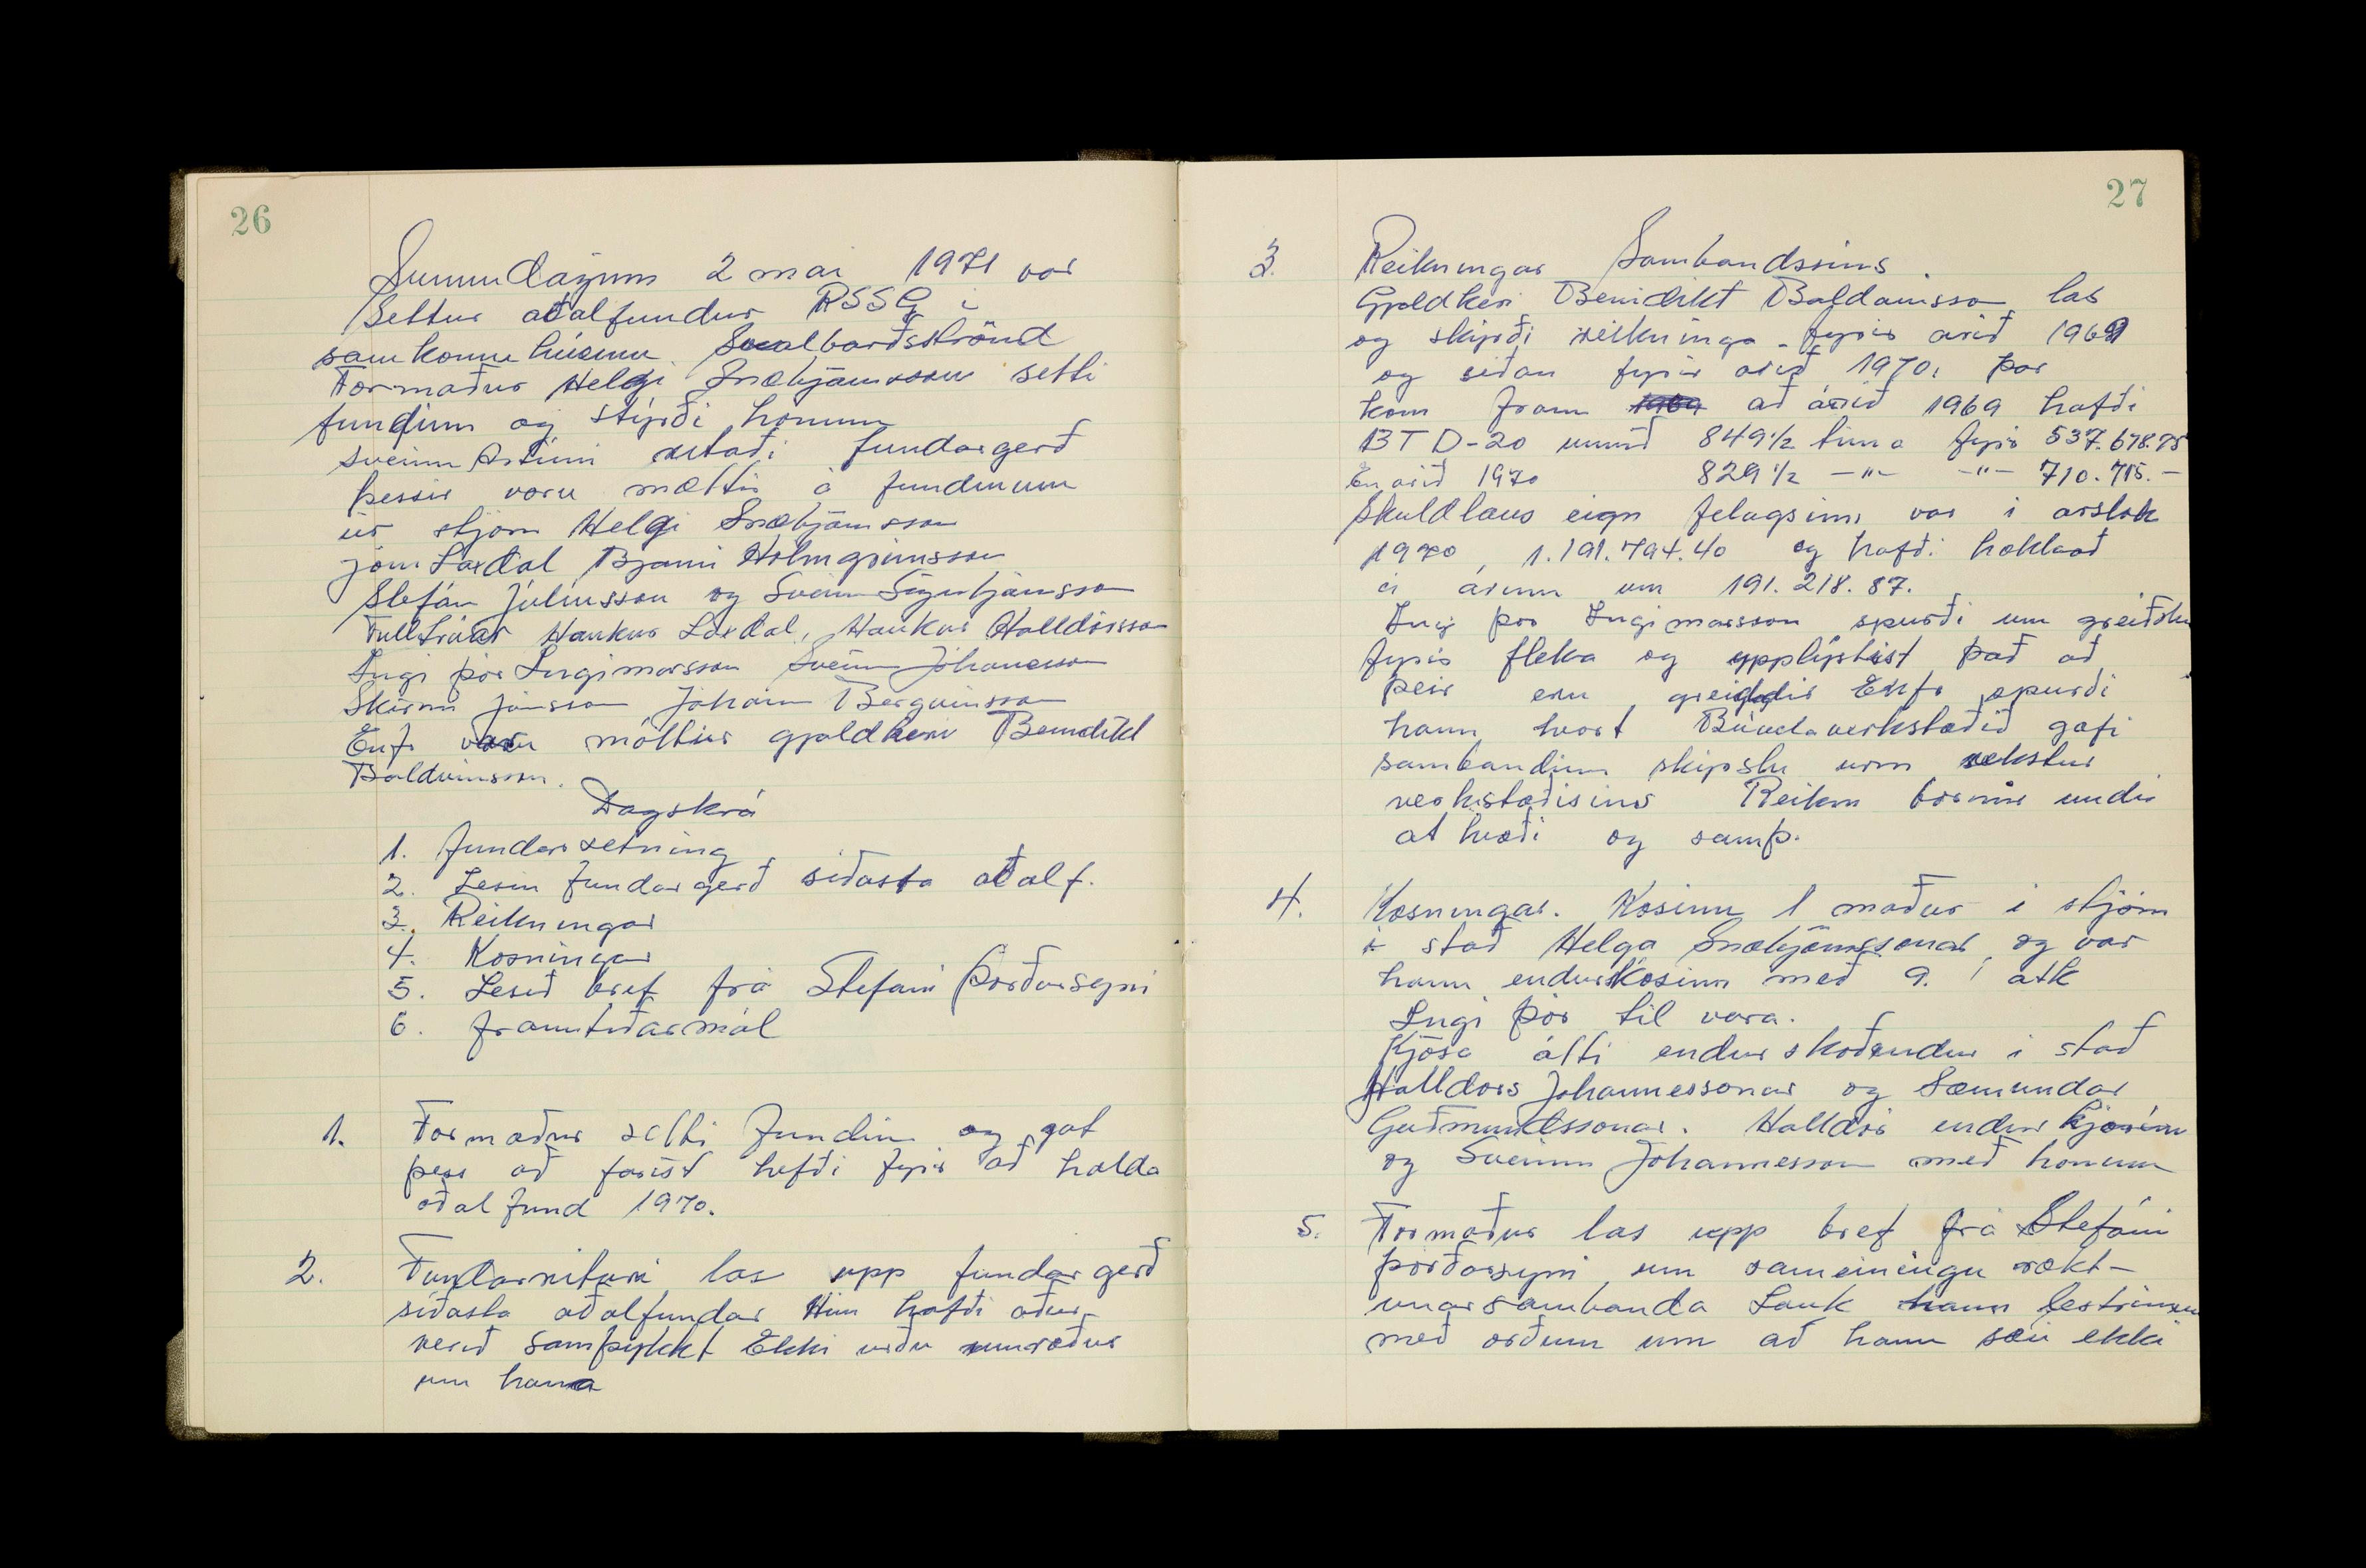 26
Sunnudaginn 2 mai 1971 var
Settur aðalfundur RSSG i
samkomuhúsinu Svalbarðsströnd
Formaður Helgi Snæbjörnsson setti
fundinn og stýrði honum
Sveinn ritaði fundargerð
þessir voru mættir á fundinum
úr stjórn Helgi Snæbjörnsson
jón Laxdal Bjarni Hólmgrimsson
Stefán Júliusson og Sveinn Sigurbjörnsson
Fulltrúar Haukur Laxdal, Haukur Halldórsson
Ingi þór Ingimarsson Sveinn Jóhannesson
Skirnir Jónsson Jóhann Bergvinsson
Enfr var mættur gjaldkeri Benedikt
Baldvinsson.
Dagskrá
1. fundarsetning
2. Lesin fundargerð siðasta aðalf.
3. Reikningar
4. Kosningar
5. Lesið bref frá Stefáni Þorðarsyni
6. framtiðarmál
1. Formaður setti fundin og gat
þess að farist hefði fyrir að halda
aðalfund 1970.
2. Fundarritari las upp fundargerð
siðasta aðalfundar Hún hafði aður
verið samþykkt Ekki urðu umræður
um hana
27
3. Reikningar Sambandssins.
Gjaldkeri Benidikt Baldvinsson las
og skýrði reikninga fyrir arið 1969
og siðan fyrir arið 1970. þar
kom fram 1969 að árið 1969 hafði
BTD-20 unnið 849 1/2 tima fyrir 537.678.75
En arið 1970 829 1/2 -"- -"- 710.715.-
Skuldlaus eign felagsins var i arslok
1970 1.191.794.40 og hafði hækkað
á árinu um 191.218.87.
Ingi þor Ingimarsson spurði um greiðslu
fyrir fleka og upplýstist það að
þeir eru greiddir Enfr spurði
hann hvort Búvelaverkstæðið gæfi
sambandinu skýrslu um rekstur
verkstæðisins Reikn bornir undir
atkvæði og samþ.
4. Kosningar. Kosinn 1 maður i stjórn
i stað Helga Snæbjörnssonar og var
hann endurkosinn með 9. atk
Ingi þór til vara.
Kjósa átti endurskoðendur i stað
Halldors Johannessonar og Sæmundar
Guðmundssonar. Halldór endurkjörinn
og Sveinn Jóhannesson með honum
5. Formaður las upp bref frá Stefáni
þorðarsyni um sameiningu rækt-
unarsambanda Lauk hann lestrinum
með orðum um að hann sæi ekki